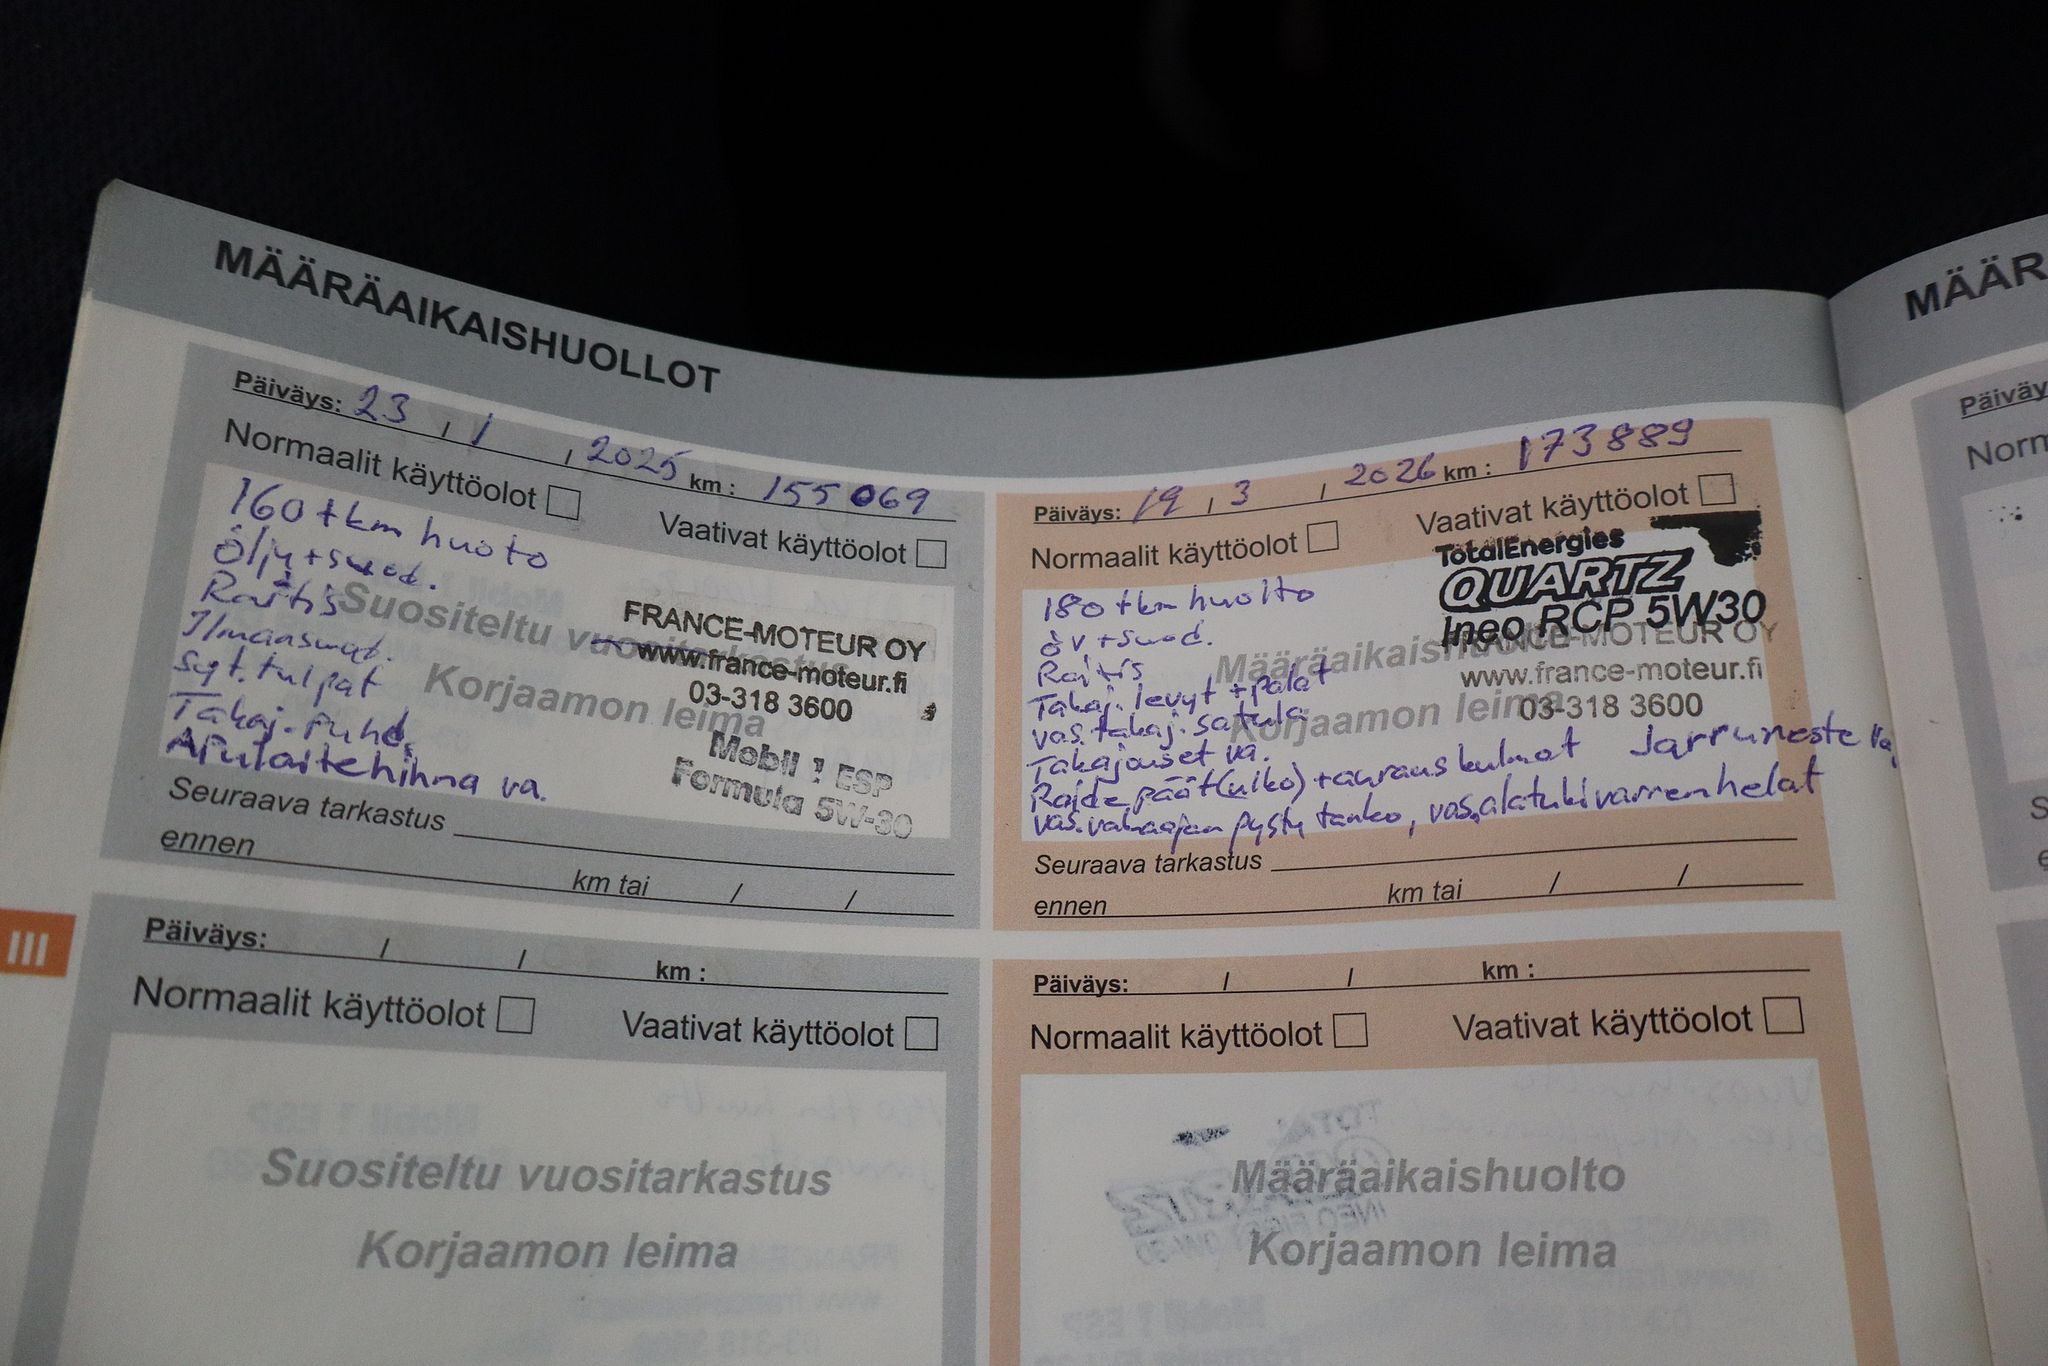 MÄÄRÄAIKAISHUOLLOT
Päiväys: 23 / 1 / 2025 km : 155 069
Normaalit käyttöolot
Vaativat käyttöolot
160 tkm huoto
Öljy+suod.
Raitis
Ilmansuod.
syt. tulpat
Takaj. puhd.
Apulaitehihna va.
Suositeltu vuositarkastus
Korjaamon leima
FRANCE-MOTEUR OY
www.france-moteur.fi
03-318 3600
Mobil 1 ESP
Formula 5W-30
Seuraava tarkastus
ennen km tai / /
Päiväys: 19 / 3 / 2026 km : 173889
Normaalit käyttöolot
Vaativat käyttöolot
TotalEnergies
QUARTZ
Ineo RCP 5W30
180 tkm huolto
öv+suod.
Raitis
Takaj. levyt + palat
vas. takaj. satula
Takajouset va.
Raide päät (ulko) + auraus kulmat Jarruneste va,
vas. vakaajan pysty tanko, vas. alatukivarren helat
Määräaikaishuolto
Korjaamon leima
FRANCE-MOTEUR OY
www.france-moteur.fi
03-318 3600
Seuraava tarkastus
ennen km tai / /
III
Päiväys: / / km :
Normaalit käyttöolot
Vaativat käyttöolot
Suositeltu vuositarkastus
Korjaamon leima
Päiväys: / / km :
Normaalit käyttöolot
Vaativat käyttöolot
Määräaikaishuolto
Korjaamon leima
MÄÄR
Päiväy
Norm
S
e